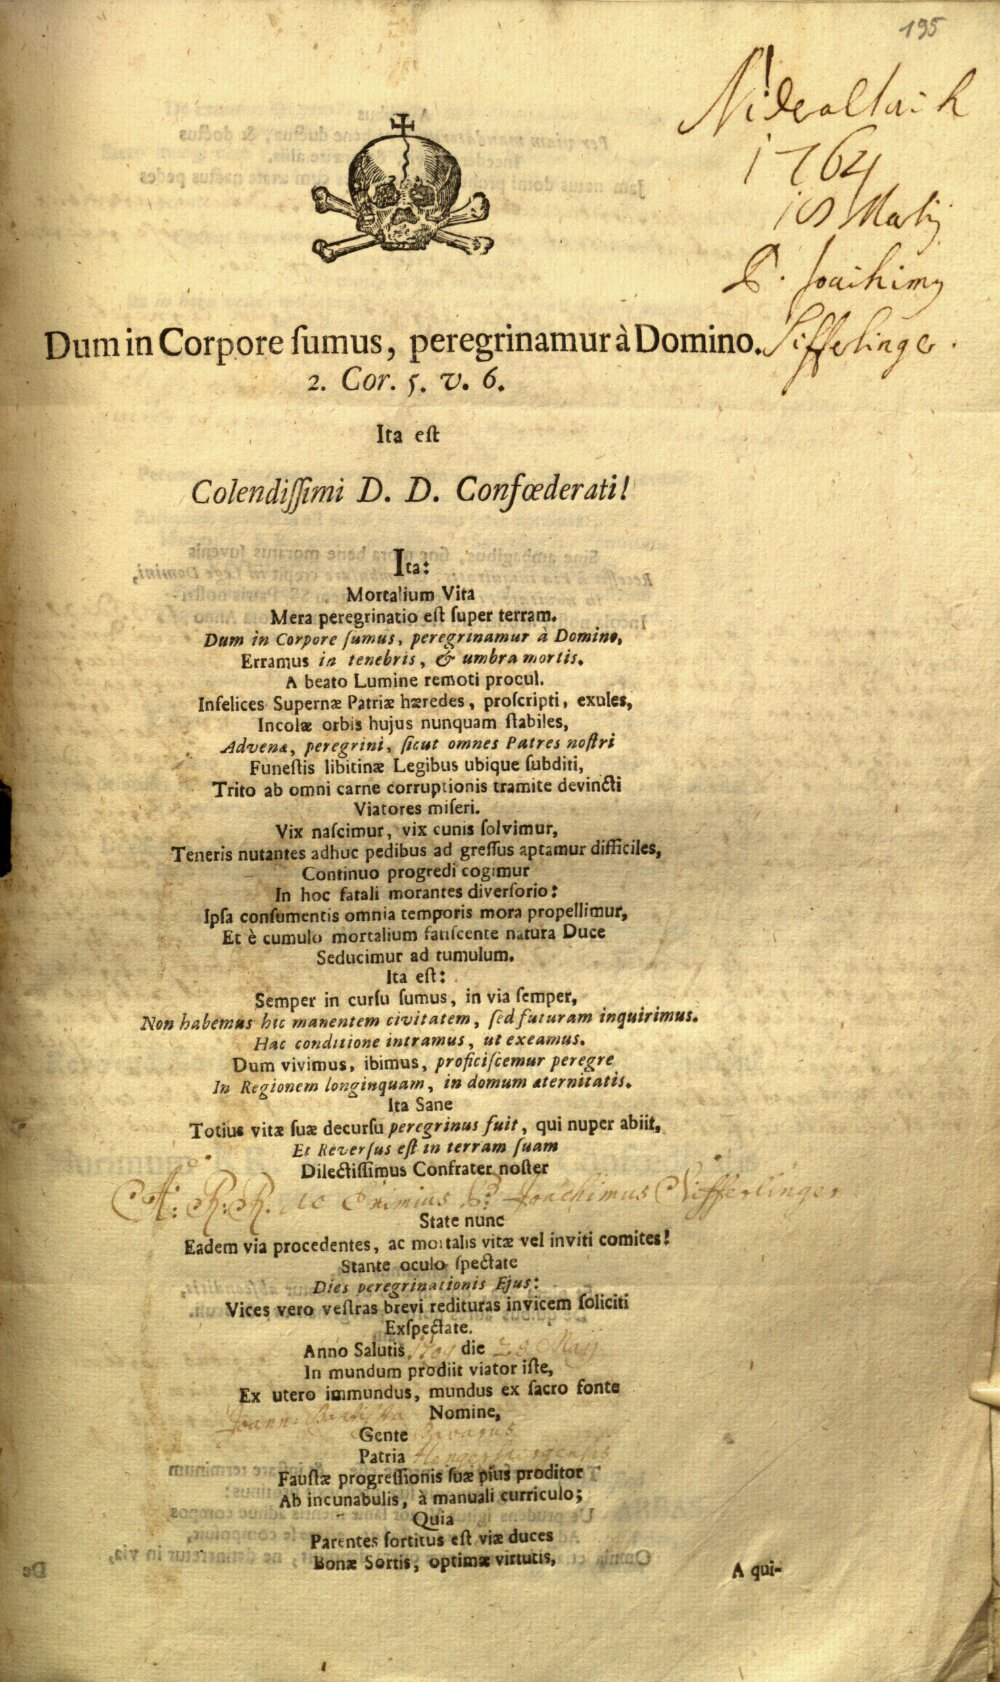 195
Nideraltaich
1764
18 Martij
P. Joachimus
Sifferlinger.
Dum in Corpore ſumus, peregrinamur à Domino.
2. Cor. 5. v. 6.
Ita eſt
Colendiſſimi D. D. Confœderati!
Ita:
Mortalium Vita
Mera peregrinatio eſt ſuper terram.
Dum in Corpore ſumus, peregrinamur à Domino,
Erramus in tenebris, & umbra mortis.
A beato Lumine remoti procul.
Infelices Supernæ Patriæ hæredes, proſcripti, exules,
Incolæ orbis hujus nunquam ſtabiles,
Advenæ, peregrini, ſicut omnes Patres noſtri
Funeſtis libitinæ Legibus ubique ſubditi,
Trito ab omni carne corruptionis tramite devincti
Viatores miſeri.
Vix naſcimur, vix cunis ſolvimur,
Teneris nutantes adhuc pedibus ad greſſus aptamur difficiles,
Continuo progredi cogimur
In hoc fatali morantes diverſorio:
Ipſa conſumentis omnia temporis mora propellimur,
Et è cumulo mortalium fatiſcente natura Duce
Seducimur ad tumulum.
Ita eſt:
Semper in curſu ſumus, in via ſemper,
Non habemus hic manentem civitatem, ſed futuram inquirimus.
Hac conditione intramus, ut exeamus.
Dum vivimus, ibimus, proficiſcemur peregre
In Regionem longinquam, in domum æternitatis.
Ita Sane
Totius vitæ ſuæ decurſu peregrinus fuit, qui nuper abiit,
Et Reverſus eſt in terram ſuam
Dilectiſſimus Confrater noſter
A. R. R. ac Eximius P. Joachimus Sifferlinger
State nunc
Eadem via procedentes, ac mortalis vitæ vel inviti comites!
Stante oculo ſpectate
Dies peregrinationis Ejus:
Vices vero veſtras brevi redituras invicem ſoliciti
Exſpectate.
Anno Salutis die 28 Maij
In mundum prodiit viator iſte,
Ex utero immundus, mundus ex ſacro fonte
Joann: Baptista Nomine,
Gente Bavarus
Patria
Fauſtæ progreſſionis ſuæ pius proditor
Ab incunabulis, à manuali curriculo;
Quia
Parentes ſortitus eſt viæ duces
Bonæ Sortis, optimæ virtutis,
A qui-